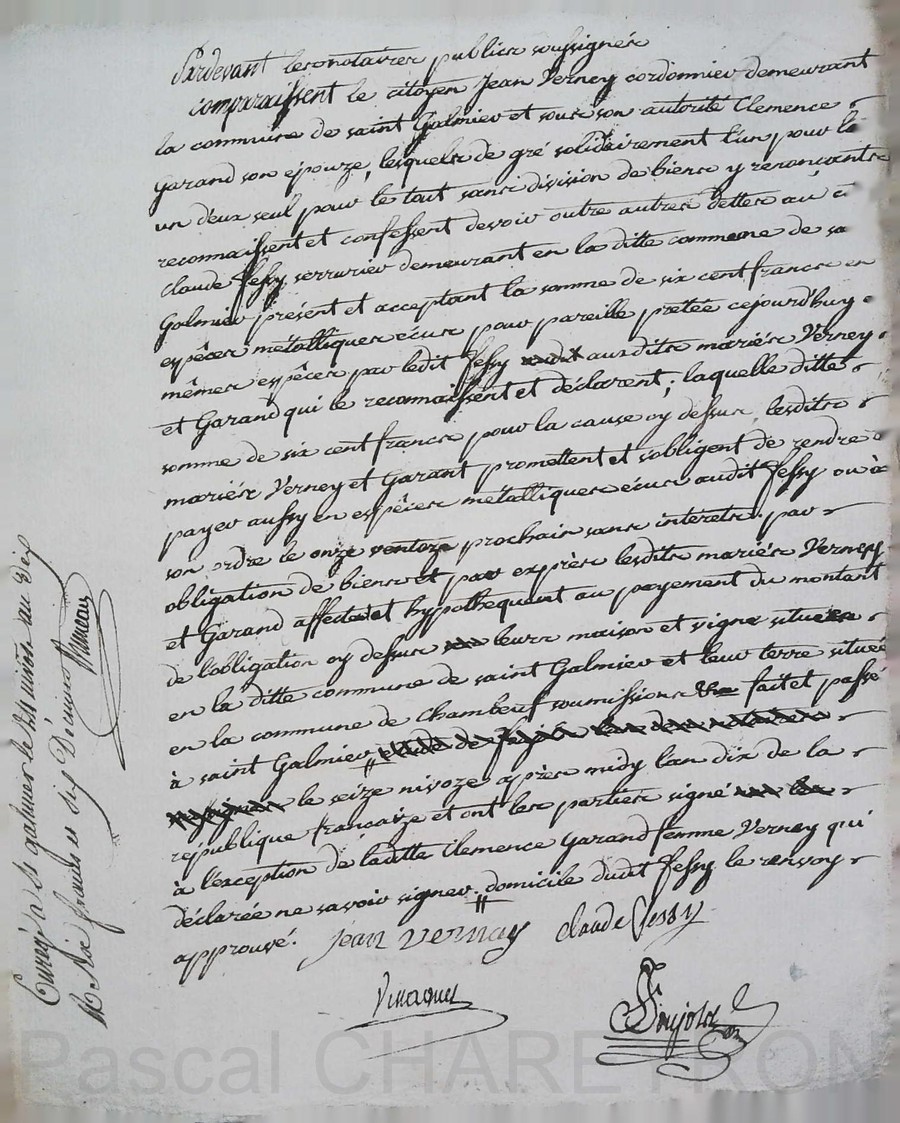 Pardevant les notaires publics soussignés
comparaissent le citoyen Jean Verney cordonnier demeurant
la commune de saint Galmier et sous son autorité Clemence
Garand son épouze, lesquels de gré solidairement l'un pour le
un d'eux seul pour le tout sans division de biens y renonçants
reconnaissent et confessent devoir outre autres dettes au
claude fessy serrurier demeurant en la ditte commune de
Galmier présent et acceptant la somme de six cent francs en
espèces métalliques écus pour pareille prêtée cejourd'huy
mêmes espèces par ledit fessy auxdits mariés Verney
et Garand qui le reconnaissent et déclarent ; laquelle ditte
somme de six cent francs pour la cause cy dessus lesdits
mariés Verney et Garant promettent et s'obligent de rendre
payer aussy en espèces métalliques écus audit fessy ou à
son ordre le onze ventoze prochain sans intérêts, par
obligation de biens et par exprès lesdits mariés Verney
et Garand affectent et hypothequent au payement du montant
de l'obligation cy dessus leurs maison et vigne situées
en la ditte commune de saint Galmier et leur terre située
en la commune de Chambeuf soumissions fait et passé
à saint Galmier
le seize nivoze après midy l'an dix de la
république françaize et ont les parties signé
à l'exception de laditte Clemence Garand femme Verney qui
déclarée ne savoir signer. domicile dudit fessy le renvoy
approuvé.
jean vernay claude fessy
Enregé à St galmier le nivos an dix
R Six francs et dix Décimes
Pascal CHAREYRON